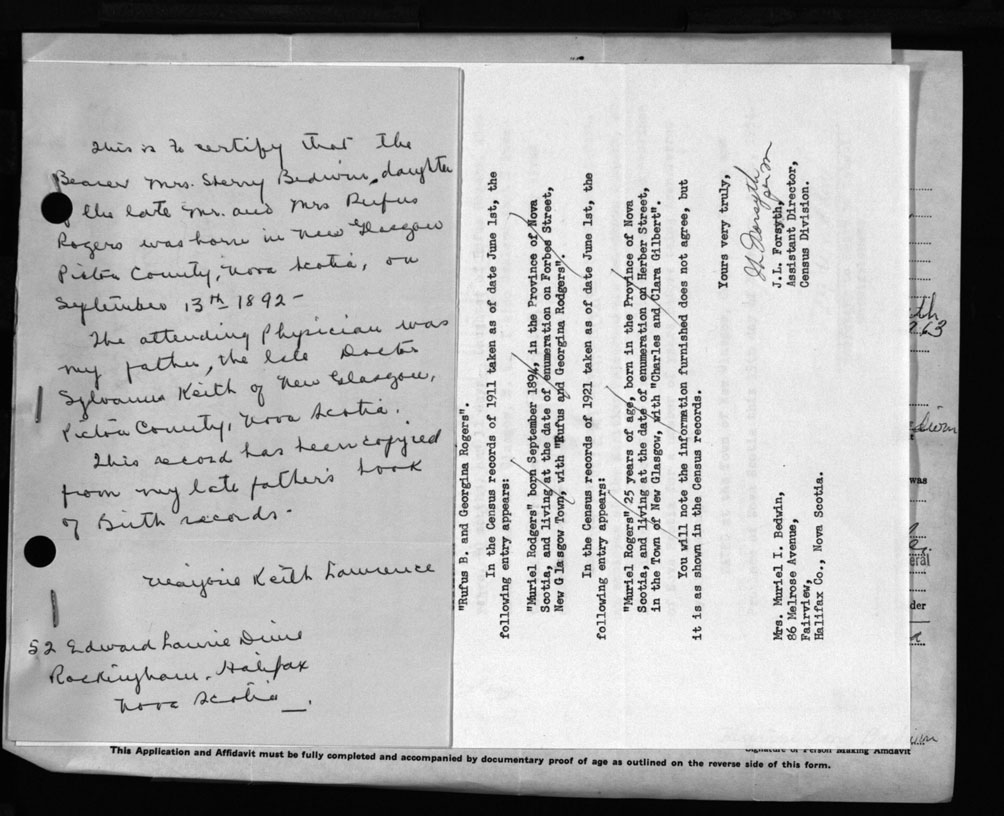 This is to certify that the
Bearer Mrs. Sherry Bedwin, daughter
of the late Mr. and Mrs Rufus
Rogers was born in New Glasgow
Pictou County, Nova Scotia, on
September 13th 1892 -
The attending Physician was
my father, the late Doctor
Sylvanus Keith of New Glasgow,
Pictou County, Nova Scotia.
This record has been copied
from my late father's book
of Birth records -
Marjorie Keith Lawrence
52 Edward Laurie Drive
Rockingham, Halifax
Nova Scotia.
"Rufus B. and Georgina Rogers".
In the Census records of 1911 taken as of date June 1st, the
following entry appears:
"Muriel Rodgers" born September 1894, in the Province of Nova
Scotia, and living at the date of enumeration on Forbes Street,
New Glasgow Town, with "Rufus and Georgina Rodgers".
In the Census records of 1921 taken as of date June 1st, the
following entry appears:
"Muriel Rogers" 25 years of age, born in the Province of Nova
Scotia, and living at the date of enumeration on Herber Street,
in the Town of New Glasgow, with "Charles and Clara Gilbert".
You will note the information furnished does not agree, but
it is as shown in the Census records.
Yours very truly,
J.L. Forsyth
J.L. Forsyth,
Assistant Director,
Census Division.
Mrs. Muriel I. Bedwin,
86 Melrose Avenue,
Fairview,
Halifax Co., Nova Scotia.
th
263
dwin
was
eral
der
Signature of Person Making Affidavit
This Application and Affidavit must be fully completed and accompanied by documentary proof of age as outlined on the reverse side of this form.